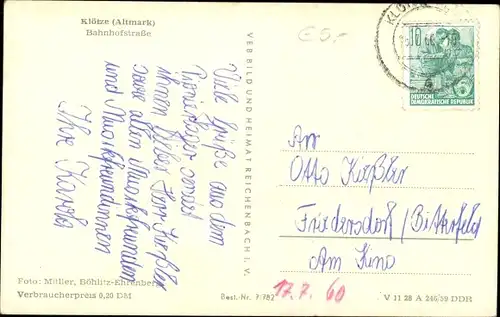 Klötze (Altmark)
Bahnhofstraße
Viele Grüße aus dem
Ihnen, lieber Herr Käßler
sowie allen Musikfreunden
und Musikfreundinnen
Ihre
VEB BILD UND HEIMAT REICHENBACH I. V.
€5,-
KLÖTZE
10
DEUTSCHE
DEMOKRATISCHE REPUBLIK
An
Otto Käßler
Friedersdorf/Bitterfeld
Am Kino
Foto: Müller, Böhlitz-Ehrenberg
Verbraucherpreis 0,20 DM
Best.-Nr. 7/382
17.7.60
V 11 28 A 246/59 DDR